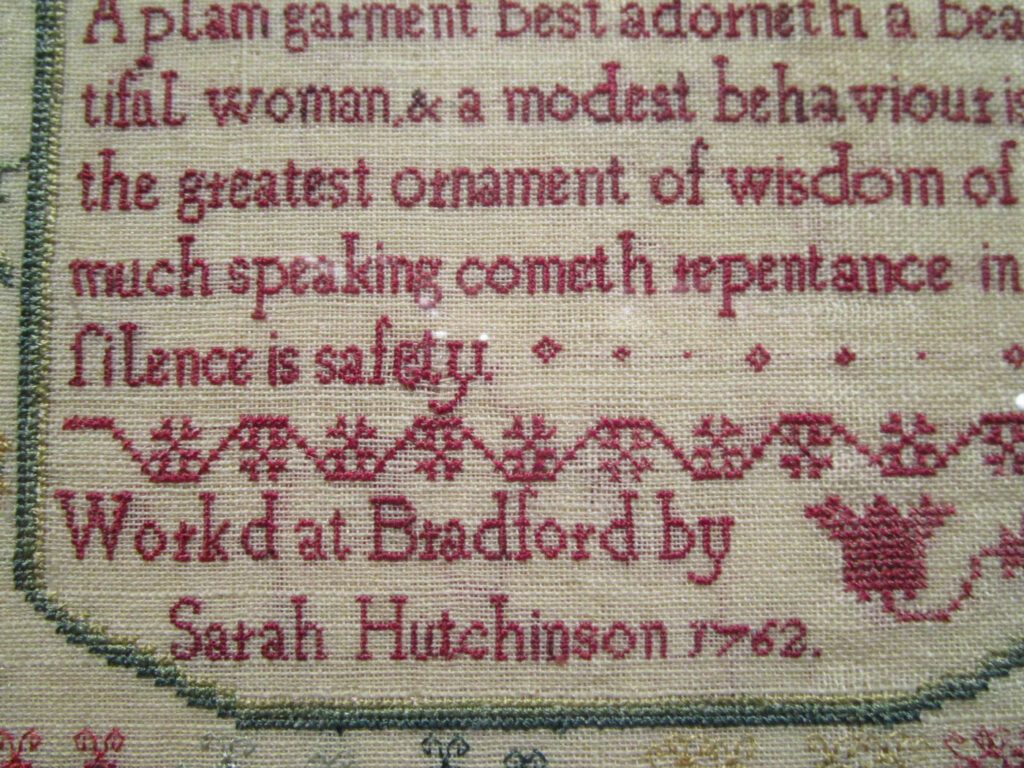 A plain garment best adorneth a bea
tiful woman, & a modest behaviour is
the greatest ornament of wisdom of
much speaking cometh repentance in
ſilence is safety.
Workd at Bradford by
Sarah Hutchinson 1762.